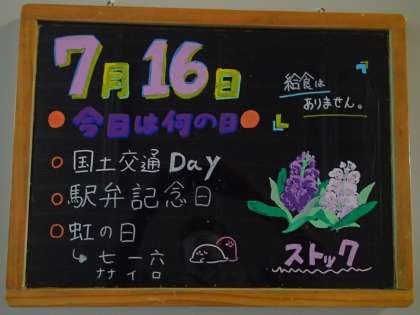 7月16日
給食は
ありません。
今日は何の日
国土交通Day
駅弁記念日
虹の日
↳ 七 一 六
ナナ イ ロ
ストック